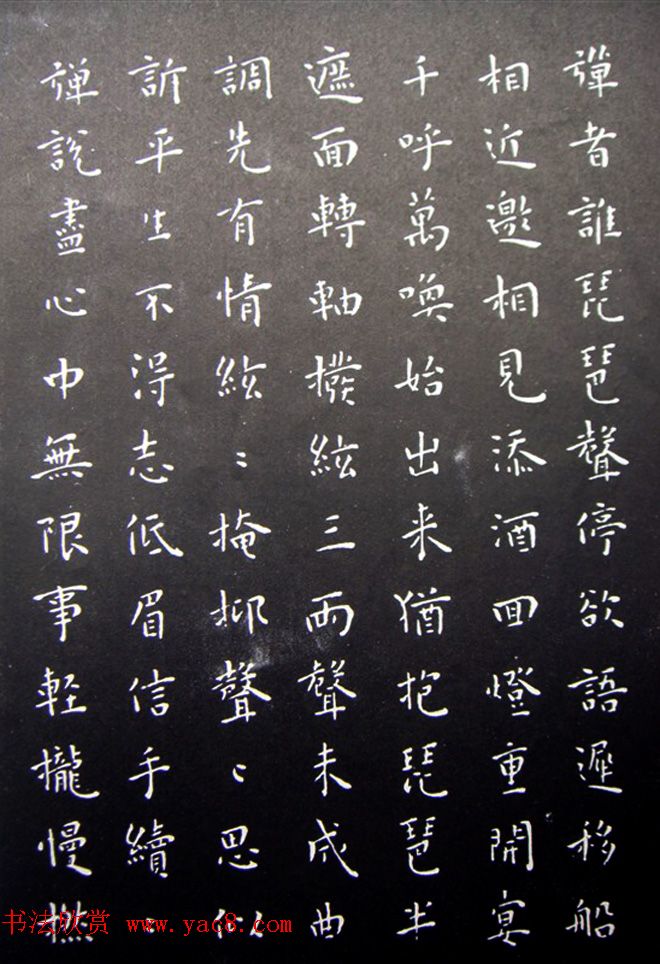 彈者誰琵琶聲停欲語遲移船
相近邀相見添酒囬燈重開宴
千呼萬喚始出来猶抱琵琶半
遮面轉軸撥絃三兩聲未成曲
調先有情絃〻掩抑聲〻思似
訴平生不淂志低眉信手續〻
彈說盡心中無限事軽攏慢撚
书法欣赏 www.yac8.com